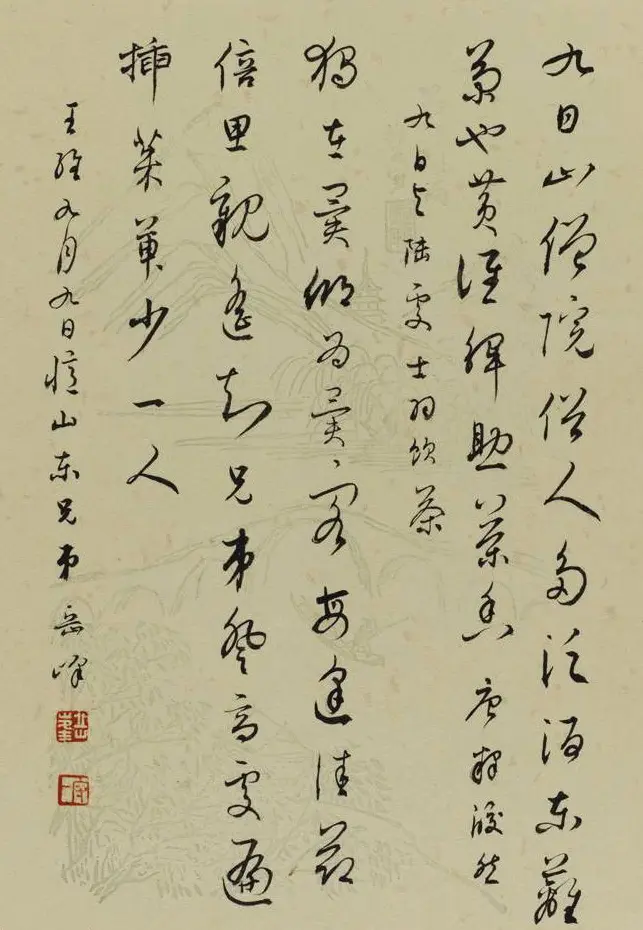 九日山僧院俗人多泛酒东蘺
菊也黄谁解助茶香 唐释皎然
九日与陆处士羽饮茶
独在異鄉为異客每逢佳节
倍思親遥知兄弟登高处遍
插茱萸少一人
王维九月九日憶山东兄弟 岳峰